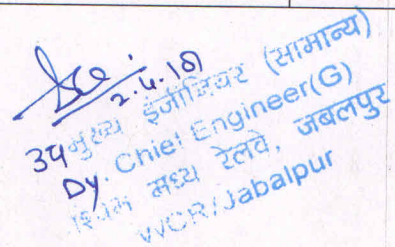 2.4.18
उप मुख्य इंजीनियर (सामान्य)
Dy. Chief Engineer(G)
पश्चिम मध्य रेलवे, जबलपुर
WCR/Jabalpur